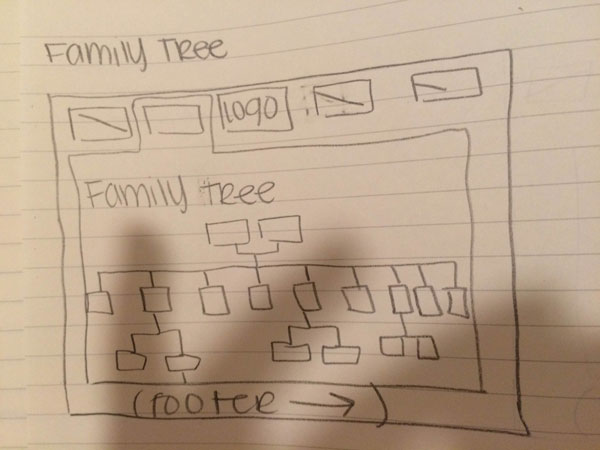 Family Tree
logo
Family Tree
(footer →)